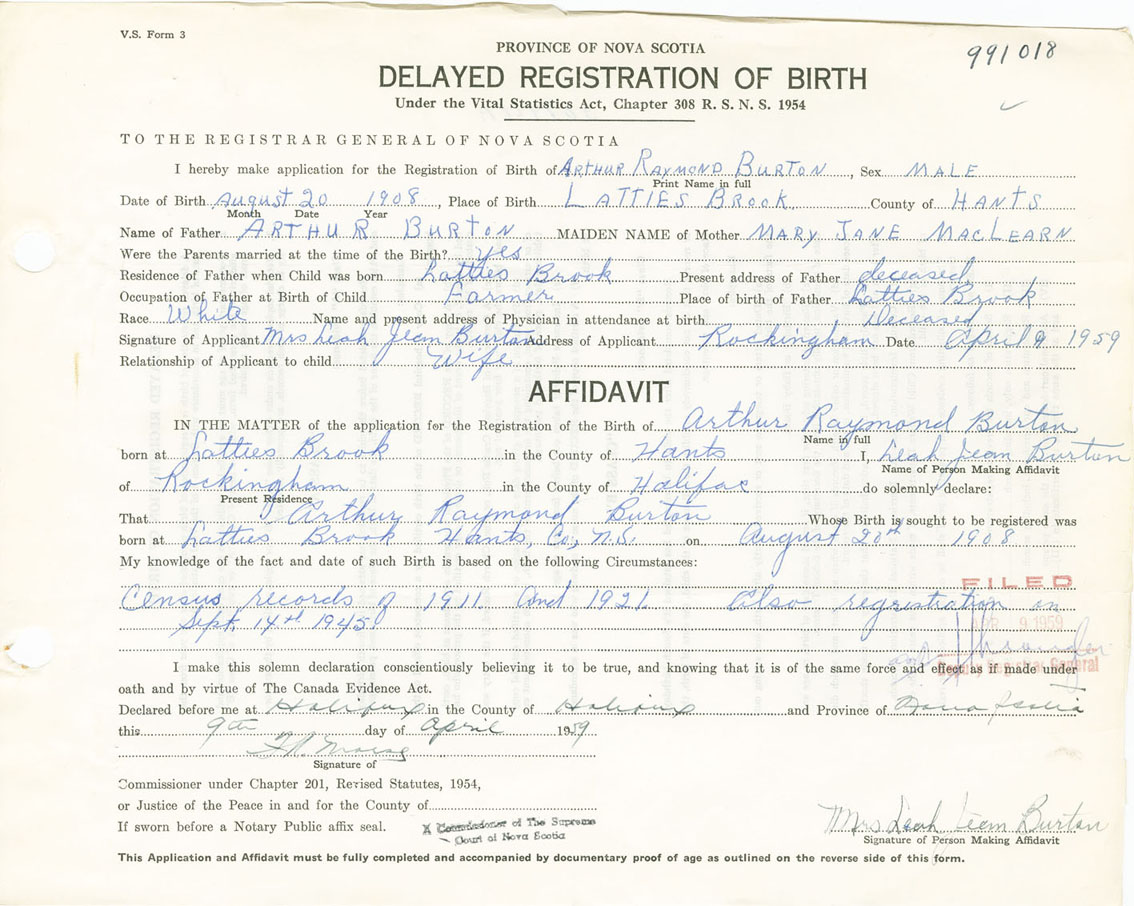 V.S. Form 3
991018
PROVINCE OF NOVA SCOTIA
DELAYED REGISTRATION OF BIRTH
Under the Vital Statistics Act, Chapter 308 R. S. N. S. 1954
TO THE REGISTRAR GENERAL OF NOVA SCOTIA
I hereby make application for the Registration of Birth of ARTHUR RAYMOND BURTON, Sex MALE
Print Name in full
Date of Birth August 20 1908, Place of Birth LATTIES BROOK County of HANTS
Month Date Year
Name of Father ARTHUR BURTON MAIDEN NAME of Mother MARY JANE MACLEARN
Were the Parents married at the time of the Birth? yes
Residence of Father when Child was born Latties Brook Present address of Father deceased
Occupation of Father at Birth of Child Farmer Place of birth of Father Latties Brook
Race White Name and present address of Physician in attendance at birth Deceased
Signature of Applicant Mrs Leah Jean Burton Address of Applicant Rockingham Date April 9 1959
Relationship of Applicant to child Wife
AFFIDAVIT
IN THE MATTER of the application for the Registration of the Birth of Arthur Raymond Burton
Name in full
born at Latties Brook in the County of Hants I, Leah Jean Burton
Name of Person Making Affidavit
of Rockingham in the County of Halifax do solemnly declare:
Present Residence
That Arthur Raymond Burton Whose Birth is sought to be registered was
born at Latties Brook Hants, Co., N.S. on August 20th 1908
My knowledge of the fact and date of such Birth is based on the following Circumstances:
FILED
Census records of 1911 and 1921. Also regristration on
Sept. 14th 1945.
APR 9 1959
Registrar General
I make this solemn declaration conscientiously believing it to be true, and knowing that it is of the same force and effect as if made under
oath and by virtue of The Canada Evidence Act.
Declared before me at Halifax in the County of Halifax and Province of Nova Scotia
this 9th day of April 1959
Signature of
Commissioner under Chapter 201, Revised Statutes, 1954,
or Justice of the Peace in and for the County of
If sworn before a Notary Public affix seal.
X Commissioner of The Supreme
Court of Nova Scotia
Mrs Leah Jean Burton
Signature of Person Making Affidavit
This Application and Affidavit must be fully completed and accompanied by documentary proof of age as outlined on the reverse side of this form.